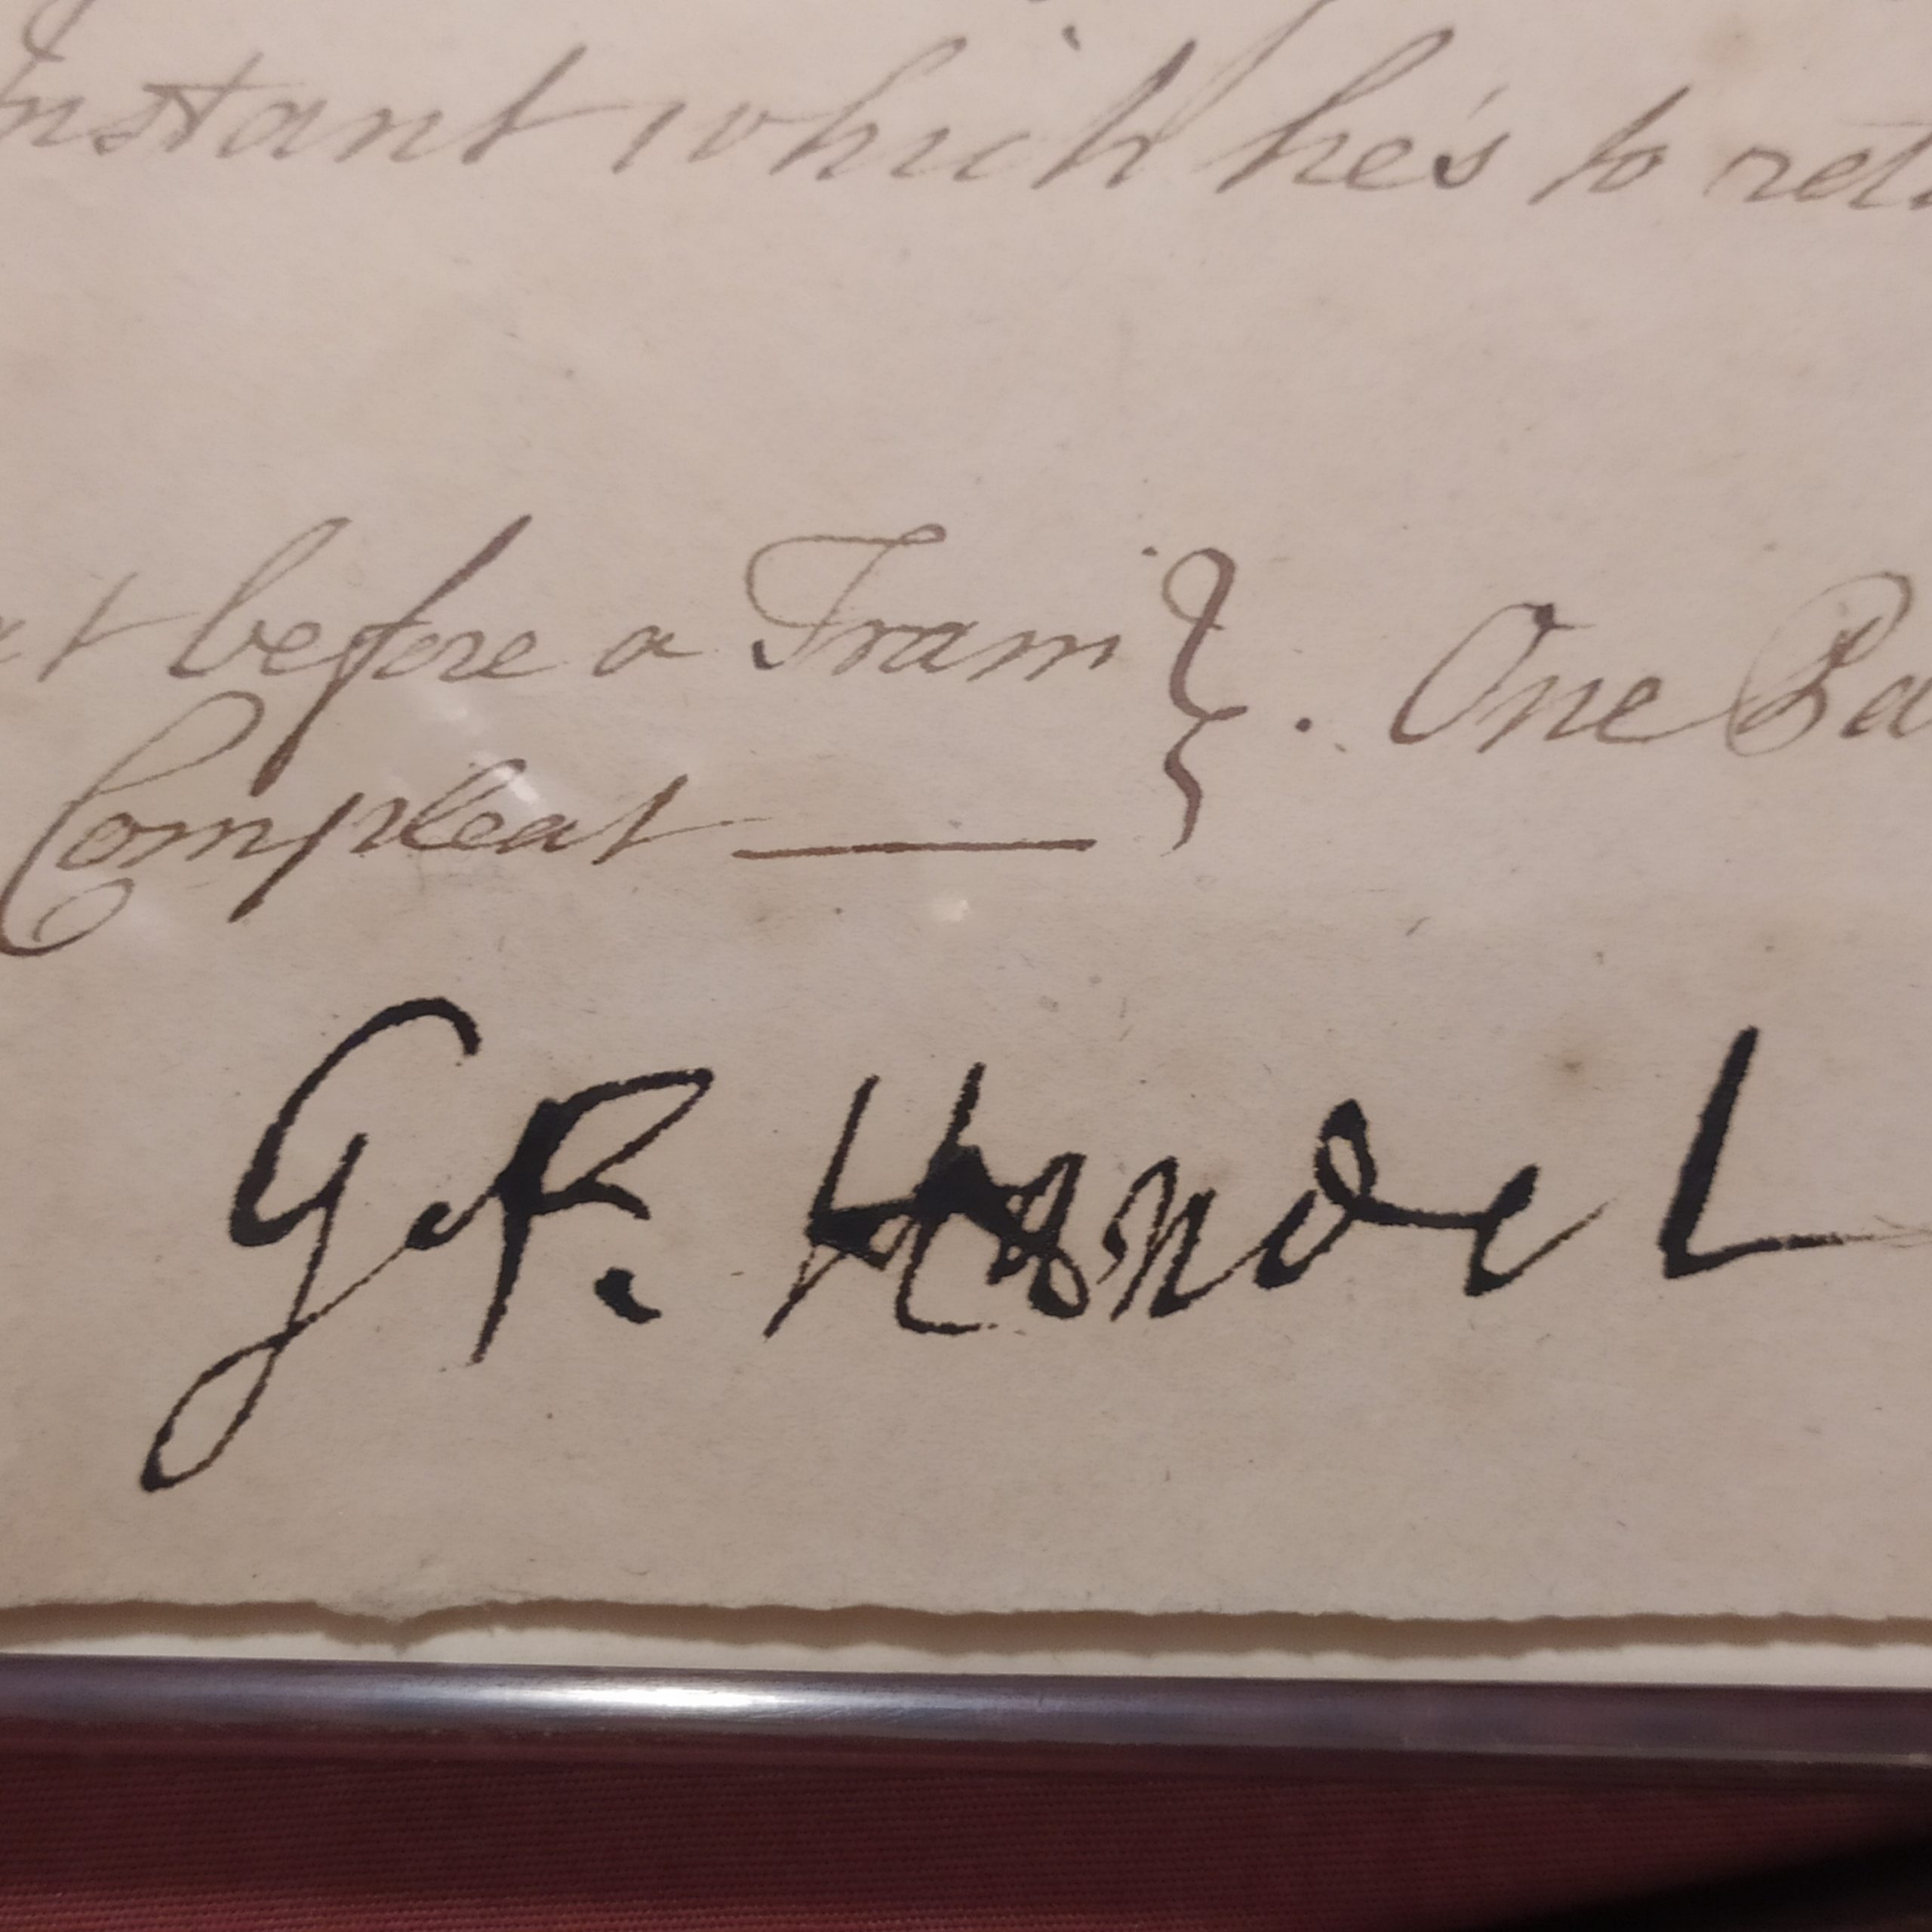 Instant which he's to
before a Tram } . One
Compleat —
G. F. Handel